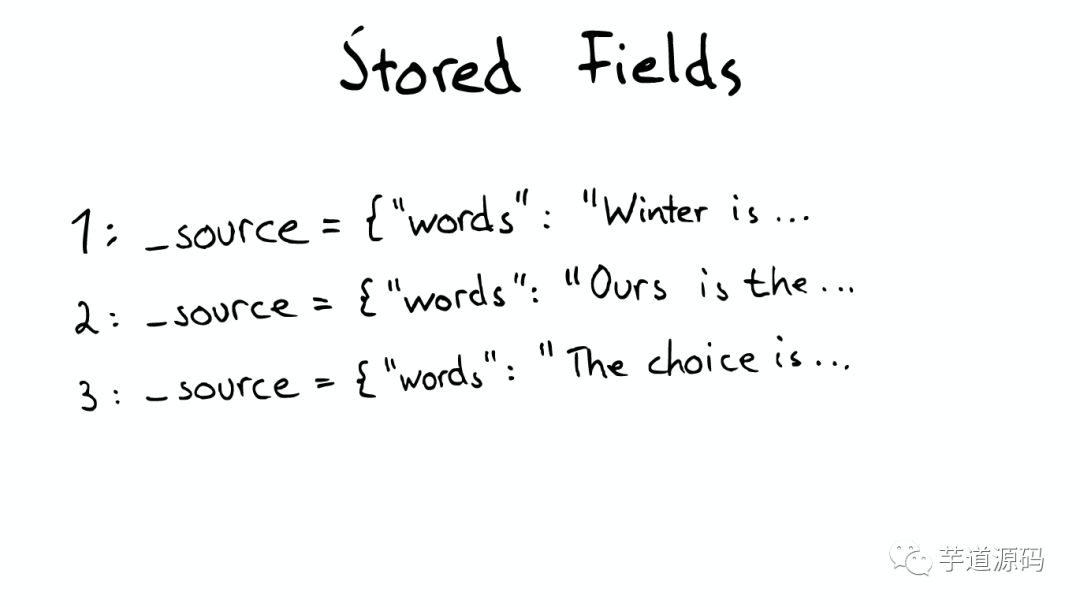 Stored Fields
1: _source = {"words": "Winter is...
2: _source = {"words": "Ours is the...
3: _source = {"words": "The choice is...
芋道源码